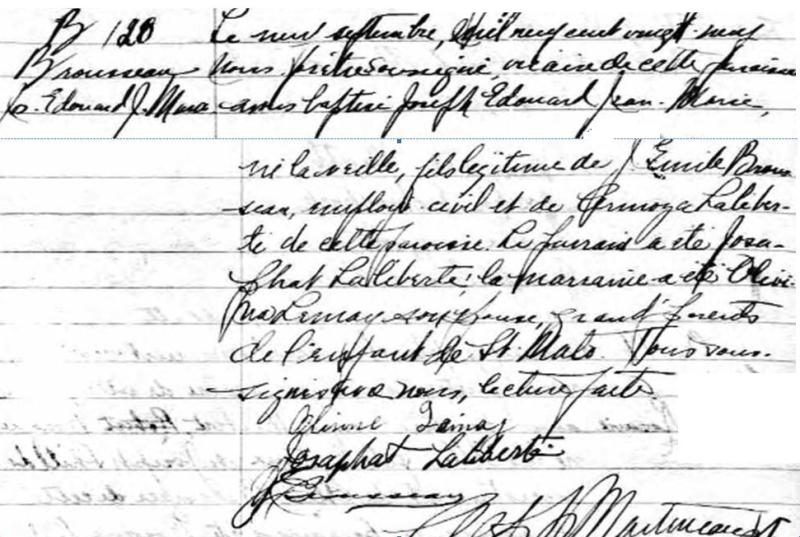 B 128
Brousseau
Jos. Edouard J. Marie
Le neuf septembre, mil neuf cent vingt-neuf
nous prêtre soussigné, vicaire de cette paroisse
avons baptisé Joseph Edouard Jean-Marie,
né la veille, fils légitime de J. Emile Brous-
seau, employé civil et de Laliber-
té de cette paroisse. Le parrain a été Josa-
phat Laliberté; la marraine a été Olivi-
na Lemay son épouse, grand'parents
de l'enfant de St. Malo. Tous sous-
signés avec nous, lecture faite
Lemay
Josaphat Laliberté
J E Brousseau